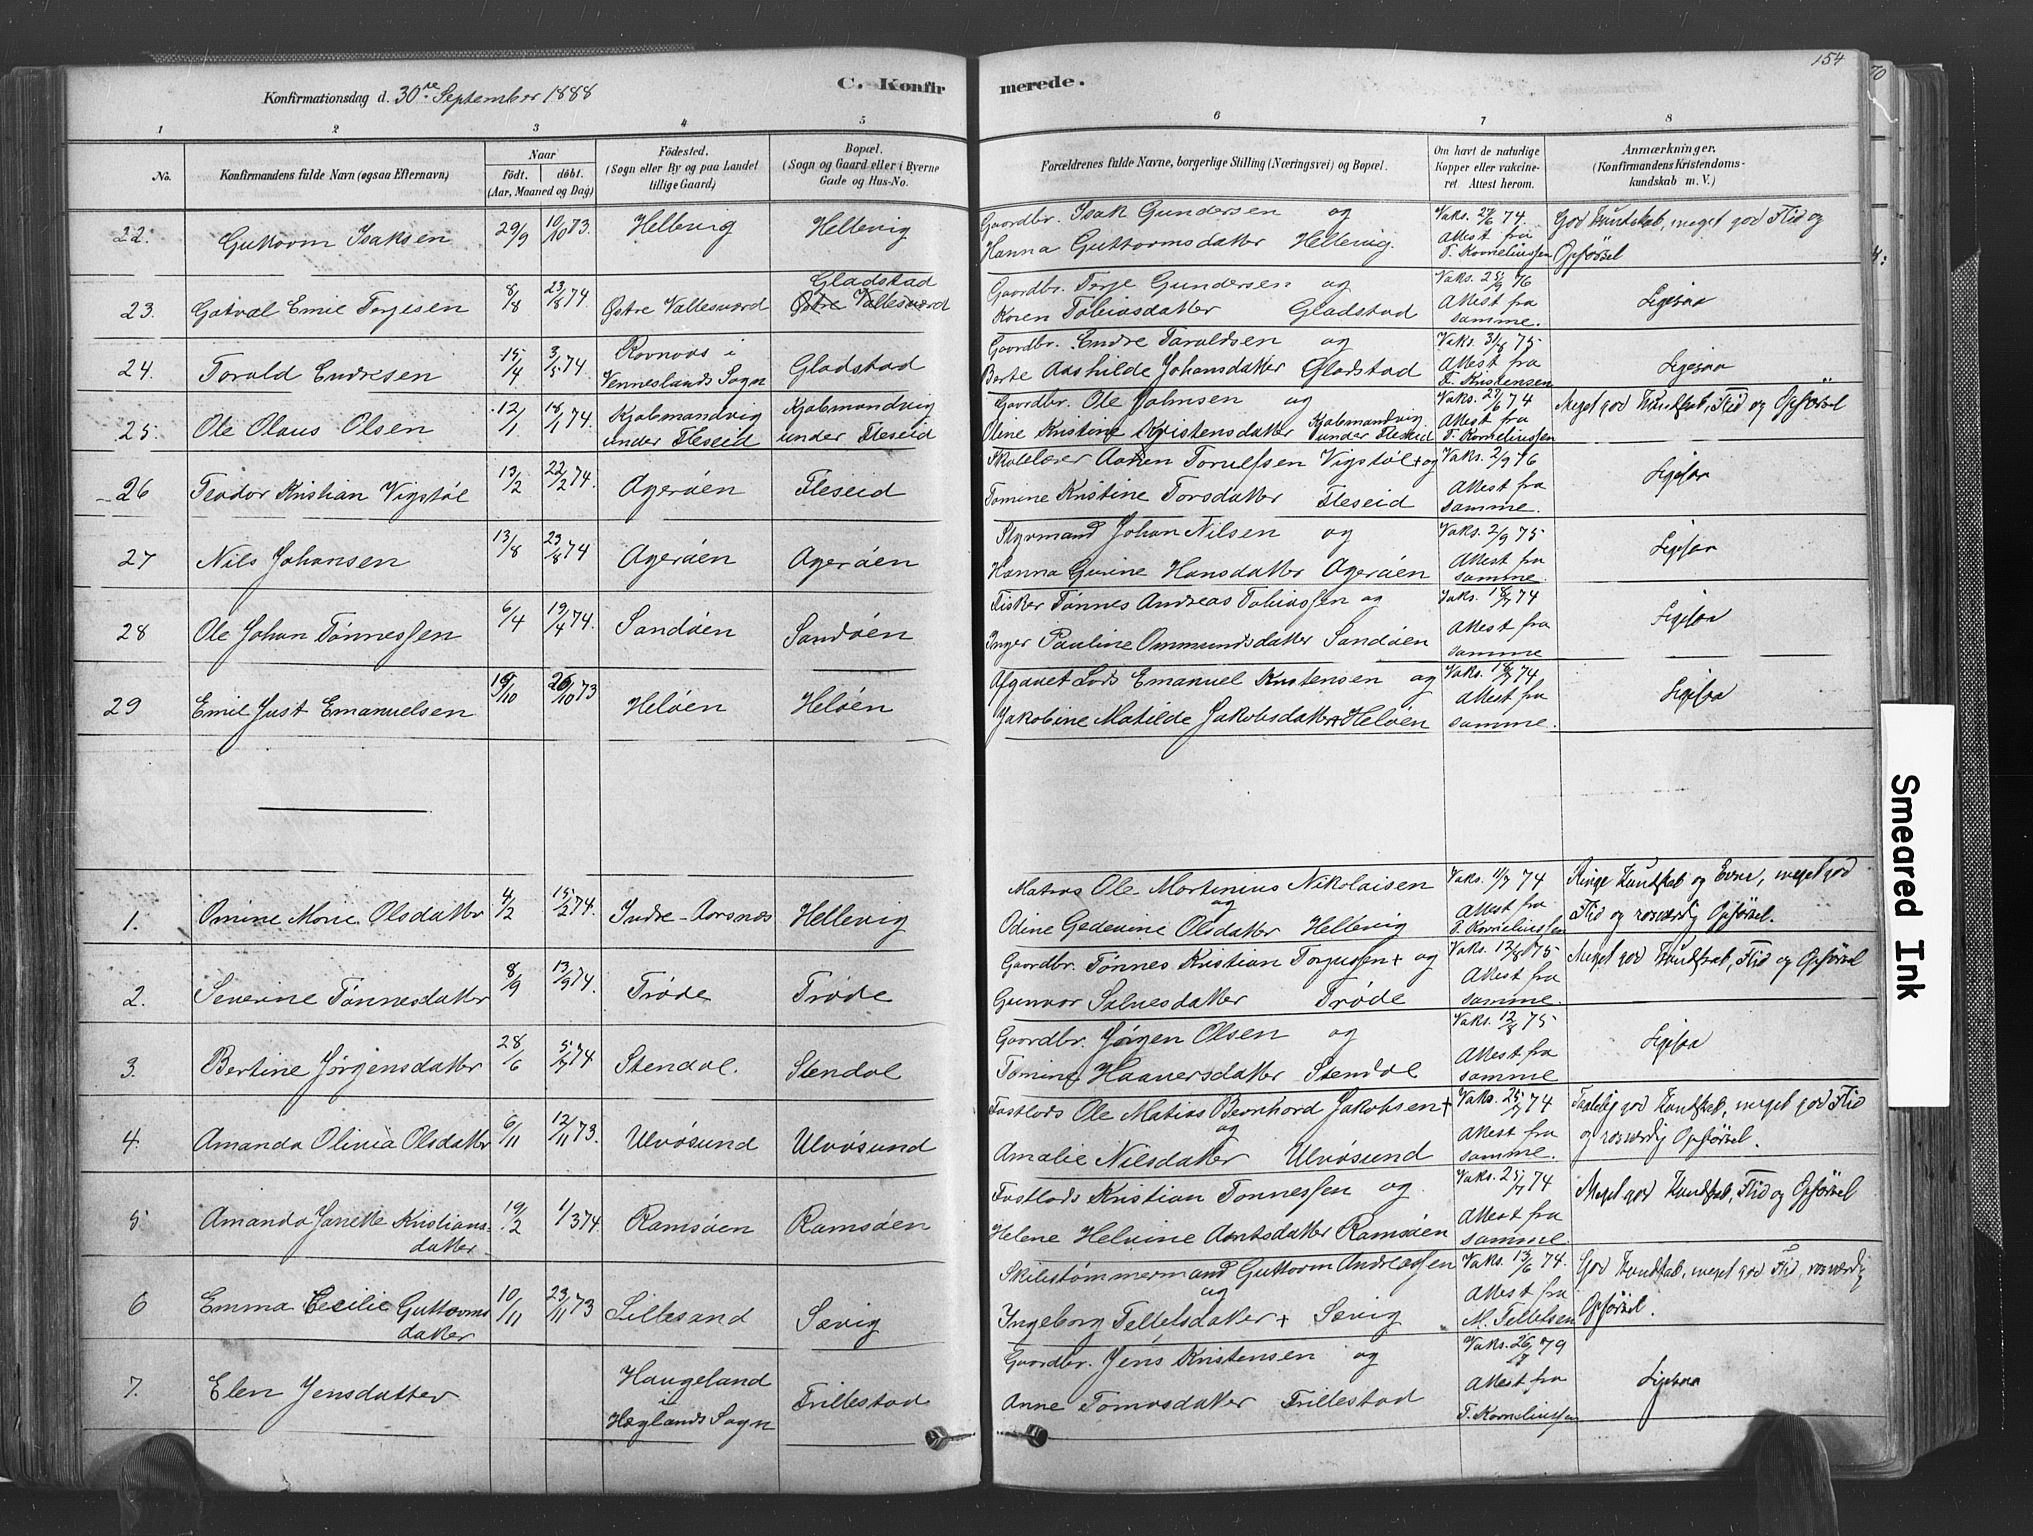 154
70
Konfirmationsdag d. 30te September 1888
C. Konfirmerede.
1 2 3 4 5 6 7 8
No.
Konfirmandens fulde Navn (ogsaa Efternavn)
Naar
födt. döbt.
(Aar, Maaned og Dag)
Födested.
(Sogn eller By og paa Landet
tillige Gaard)
Bopæl.
(Sogn og Gaard eller i Byerne
Gade og Hus-No.
Forældrenes fulde Navne, borgerlige Stilling (Næringsvei) og Bopæl.
Om havt de naturlige
Kopper eller vakcine-
ret Attest herom.
Anmærkninger.
(Konfirmandens Kristendoms-
kundskab m. V.)
22. Guttorm Isaksen 29/9 10/10 73. Hellevig Hellevig
Gaardbr. Isak Gundersen og
Hanna Guttormsdatter Hellevig.
Vaks. 27/6 74.
Attest fra
T. Korneliussen
God Kundskab, meget god Flid og
Opførsel
23. Gotval Emil Terjesen 8/8 23/8 74. Østre Vallesværd
Gladstad
Østre Vallesværd
Gaardbr. Terje Gundersen og
Karen Tobiasdatter Gladstad
Vaks. 25/9 76
Attest fra
samme.
Ligesaa
24. Torald Endresen 15/4 3/5 74.
Venneslands Sogn
Gladstad
Gaardbr. Endre Taraldsen og
Berte Aashilde Johansdatter Gladstad
Vaks. 31/8 75
Attest fra
F. Kristensen
Ligesaa
25. Ole Olaus Olsen 12/1 18/1 74.
Kjøbmandvig
under Fleseid
Kjøbmandvig
under Fleseid
Gaardbr. Ole Johnsen og
Oline Kristine Kristensdatter Kjøbmandvig
under Fleseid
Vaks. 27/6 74
Attest fra
T. Korneliussen
Meget god Kundskab, Flid og Opførsel
26 Teodor Kristian Vigstøl 13/2 22/2 74. Agerøen Fleseid
Skolelærer Aanen Torulfsen Vigstøl + og
Tomine Kristine Torsdatter Fleseid
Vaks. 2/9 76
Attest fra
samme.
Ligesaa
27 Nils Johansen 13/8 23/8 74 Agerøen Agerøen
Styrmand Johan Nilsen og
Hanna Gurine Hansdatter Agerøen
Vaks. 2/9 75
Attest fra
samme.
Ligesaa
28 Ole Johan Tønnessen 6/4 19/4 74. Sandøen Sandøen
Fisker Tønnes Andreas Tobiassen og
Inger Pauline Ommundsdatter Sandøen
Vaks. 18/7 74
Attest fra
samme
Ligesaa
29 Emil Just Emanuelsen 26/10 73 Heløen Heløen
Afgaaet Lods Emanuel Kristensen og
Jakobine Matilde Jakobsdatter Heløen
Vaks. 18/7 74
Attest fra
samme.
Ligesaa
1. Omine Marie Olsdatter 4/2 15/2 74. Indre-Aarsnæs Hellevig
Matros Ole Martinius Nikolaisen
og
Odine Gedevine Olsdatter Hellevig
Vaks. 11/7 74
Attest fra
T. Korneliussen
Ringe Kundskab og Evne, meget god
Flid og rosværdig Opførsel.
2. Severine Tønnesdatter 8/9 13/9 74. Trøde Trøde
Gaardbr. Tønnes Kristian Torjussen + og
Gunvor Salvesdatter Trøde
Vaks. 12/8 75
Attest fra
samme.
Meget god Kundskab, Flid og Opførsel
3. Bertine Jørgensdatter 28/6 5/7 74 Stendal. Stendal
Gaardbr. Jørgen Olsen og
Tomine Haaversdatter Stendal
Vaks. 12/8 75
Attest fra
samme
Ligesaa
4. Amanda Olivia Olsdatter 6/11 12/11 73. Ulvøsund Ulvøsund
Fastlods Ole Matias Bernhard Jakobsen +
og
Amalie Nilsdatter Ulvøsund
Vaks. 25/7 74
Attest fra
samme.
Taalelig god Kundskab, meget god Flid
og rosværdig Opførsel.
5 Amanda Janette Kristians-
datter
19/2 1/3 74. Ramsøen Ramsøen
Fastlods Kristian Tønnessen og
Helene Helvine Arntsdatter Ramsøen
Vaks. 25/7 74
Attest fra
samme.
Meget god Kundskab, Flid og Opførsel
6 Emma Cecilie Guttorms
datter
10/11 23/11 73 Lillesand Sævig
Skibstømmermand Guttorm Andreassen
og
Ingeborg Tellefsdatter + Sævig
Vaks. 13/6 74.
Attest fra
M. Tellefsen
God Kundskab, meget god Flid, rosværdig
Opførsel.
7. Elen Jensdatter
Haugeland
i
Høglands Sogn
Trillestad
Gaardbr. Jens Kristensen og
Anne Tomasdatter Trillestad
Vaks. 26/7 79
Attest fra
T. Korneliussen
Ligesaa
Smeared Ink